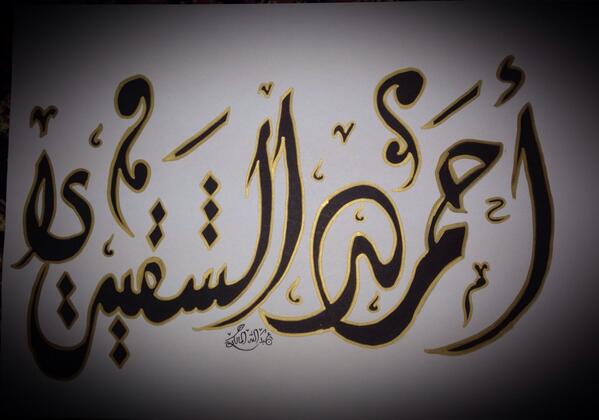 أحمد الشقيري